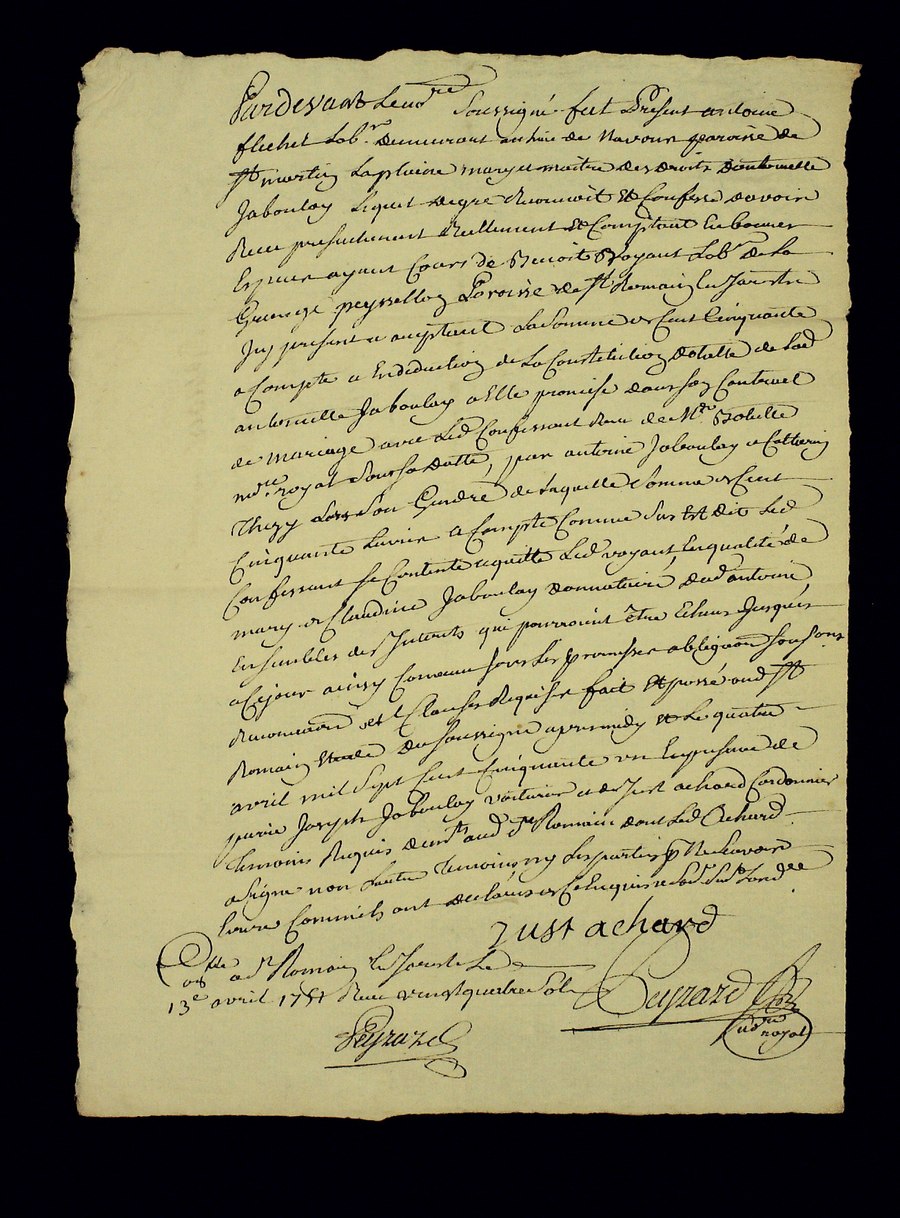 Pardevant Le no.re Soussigné fut Present antoine
flechet Lab.r demeurant au lieu de Navoux paroisse de
S.t martin La plaine mary et maitre des droits d'antoinette
Jaboulay Lequel de gré Reconnoit Et Confesse d'avoir
Receu presentement Reellement Et Comptant En bonnes
Espèces ayant Cours de Benoit Royant Lab.r de La
Grange peysselloy Paroisse de S.t Romain En Jarestre
Icy present et acceptant La Somme de Cent Cinquante
a Compte et En deduction de La Constitution dotalle de Lad
antoinette Jaboulay a Elle promise dans son Contract
de mariage avec Led Confessant Receu de M.re
no.re royal Sous Sa datte, par antoine Jaboulay et Catherin
Thizy Son Gendre de Laquelle Somme de Cent
Cinquante Livres a Compte Comme Sus Est dit Led
Confessant Se Contente et quitte Led royant En qualité de
mary de Claudine Jaboulay donnataire dud antoine
Ensembles des Interets qui pourroient être Echus Jusques
a Ce jour ainsy Convenu Sous Les promesses obligaõns Soumons
Renonciaõns et Clauses Requises fait Et passé aud S.t
Romain Etude du Soussigné apres midy Et Le quatre
avril mil Sept Cent Cinquante un En presence de
Joseph Jaboulay voiturier et de Just achard Cordonnier
temoins Requis dem.ts aud S.t Romain dont Led Achard
a Signé non L'autre temoin ny Les parties p Ne Scavoir
Ecrire Comme ils ont declaré de Ce Enquis
Just achard
Con.lle a S.t Romain En Jarestre Le
13e avril 1751 Receu vingt quatre Sols
Peyrard
no.re royal
Peyrard